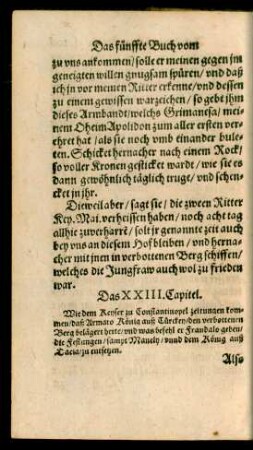 Das fünffte Buch vom
zu vns ankommen / solle er meinen gegen jm
geneigten willen gnugsam spüren / vnd daß
ich jn vor meinen Ritter erkenne / vnd dessen
zu einem gewissen warzeichen / so gebt jhm
dieses Armbandt / welchs Grimanesa / mei-
nem Oheim Apolidon zum aller ersten ver-
ehret hat / als sie noch vmb einander bule-
ten. Schicket hernacher nach einem Rock /
so voller Kronen gesticket wardt / wie sie es
dann gewöhnlich täglich truge / vnd schen-
cket jn jhr.
Dieweil aber / sagt sie / die zween Ritter
Key. Mai. verheissen haben / noch acht tag
allhie zuverharrē / solt jr genannte zeit auch
bey vns an diesem Hof bleiben / vnd herna-
cher mit jnen in verbottenen Berg schiffen /
welches die Jungfraw auch wol zu frieden
war.
Das XXIII. Capitel.
Wie dem Keyser zu Constantinopel zeitungen kom-
men / daß Armato König auß Türckey / den verbottenen
Berg belägert hette / vnd was befehl er Frandalo geben /
die Festungen / sampt Manely / vnnd dem König auß
Dacia / zu entsetzen.
Also